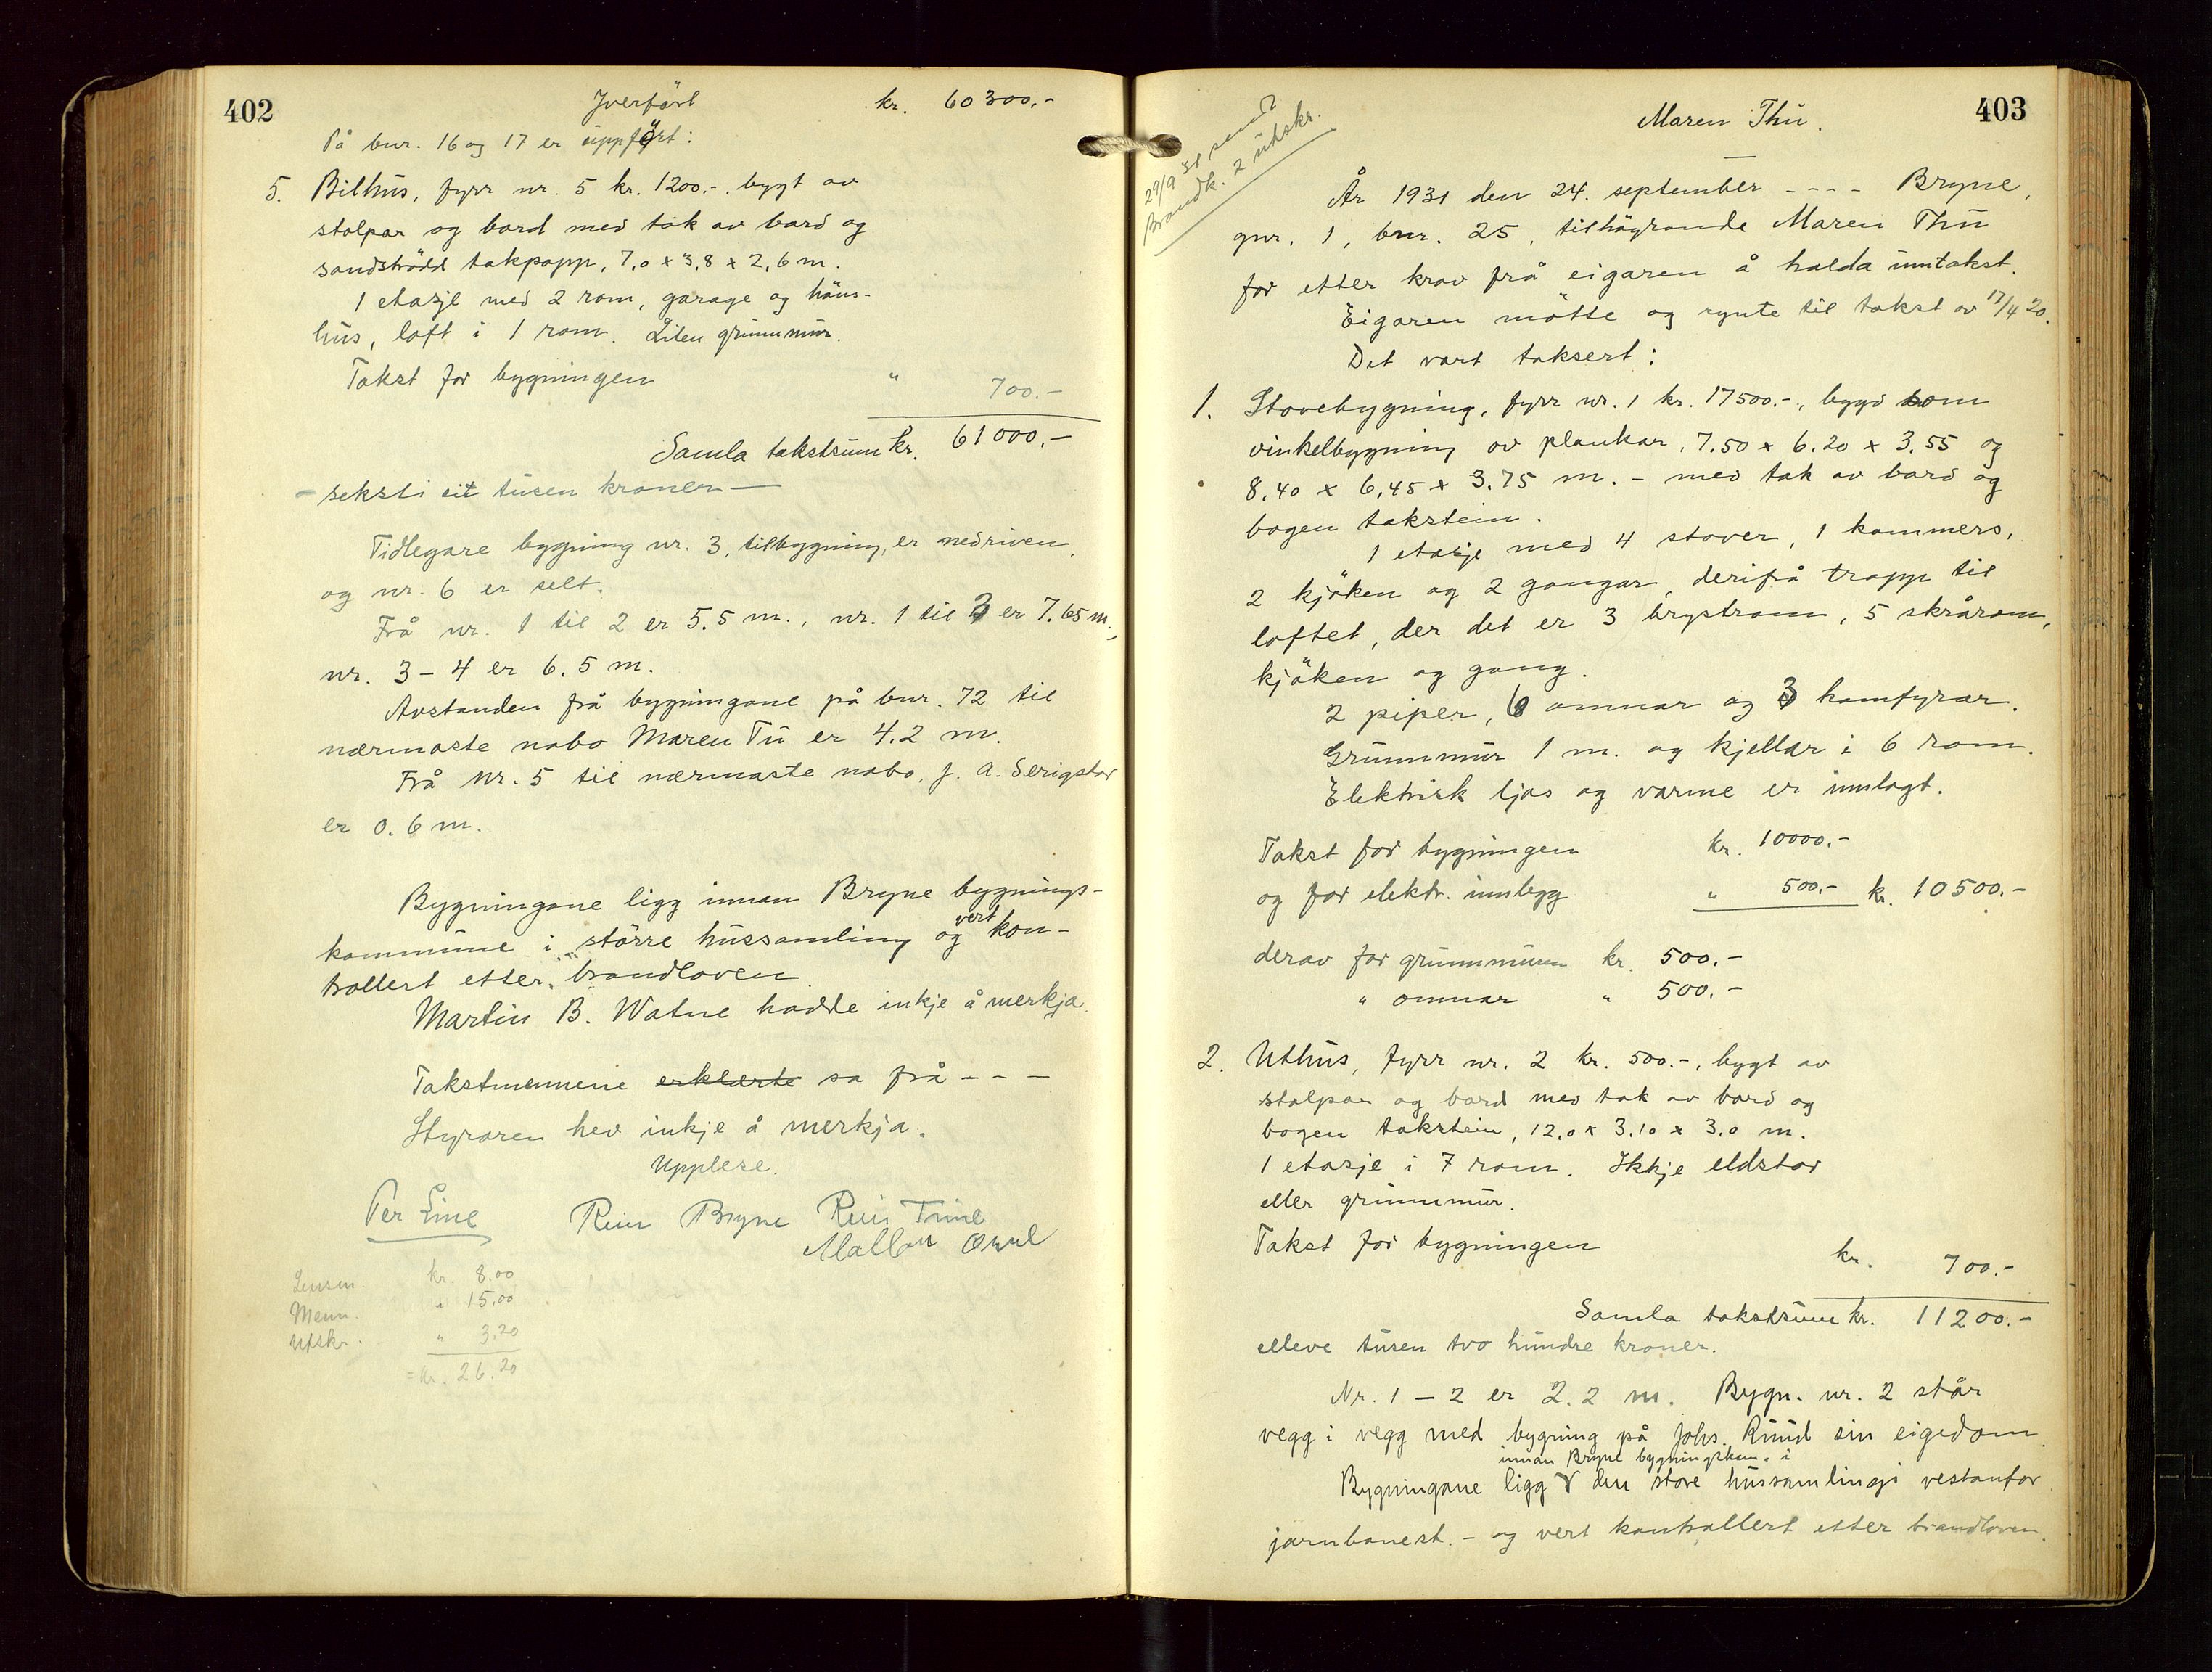 402
Yverført kr. 60300.-
På bnr. 16 og 17 er uppført:
5. Bilhus, fyrr nr. 5 kr. 1200.-, bygt av
stolpar og bord med tak av bord og
sandströdd takpapp, 7,0 x 3,8 x 2,6 m.
1 etasje med 2 rom, garage og höns-
hus, loft i 1 rom. Liten grunnmur.
Takst for bygningen " 700.-
Samla takstsum kr. 61000.-
- seksti eit tusen kroner -
Tidlegare bygning nr. 3, tilbygning, er nedriven,
og nr. 6 er selt.
Frå nr. 1 til 2 er 5.5 m., nr. 1 til 3 er 7.65 m.,
nr. 3 - 4 er 6.5 m.
Avstanden frå bygningane på bnr. 72 til
nærmaste nabo Maren Tu er 4.2 m.
Frå nr. 5 til nærmaste nabo, J. A. Serigstad
er 0.6 m.
Bygningane ligg innan Bryne bygnings-
kommune i större hussamling og vert kon-
trollert etter brandloven.
Martin B. Watne hadde inkje å merkja.
Takstmennene erklærte sa frå - - -
Styraren hev inkje å merkja.
Upplese.
Per Line Rein Bryne Rein Time
Lensm. kr. 8.00
Menn. " 15.00
Utskr. " 3.20
= kr. 26.20
403
Maren Thu.
29/9 31 sendt
Brandk. 2 utskr.
År 1931 den 24. september - - - - Bryne,
gnr. 1, bnr. 25, tilhöyrande Maren Thu
for etter krav frå eigaren å halda umtakst.
Eigaren mötte og synte til takst av 17/4 20.
Det vart taksert:
1. Stovebygning, fyrr nr. 1 kr. 17500.-, bygd som
vinkelbygning av plankar, 7.50 x 6.20 x 3.55 og
8,40 x 6,45 x 3.75 m. - med tak av bord og
bogen takstein.
1 etasje med 4 stover, 1 kammers,
2 kjöken og 2 gangar, derifrå trapp til
loftet, der det er 3 brystrom, 5 skrårom,
kjöken og gang.
2 piper, 6 omnar og 3 komfyrar.
Grunnmur 1 m. og kjellar i 6 rom.
Elektrisk ljos og varme er innlagt.
Takst for bygningen kr. 10000.-
og for elektr. innlegg " 500.- kr. 10500.-
derav for grunnmuren kr. 500.-
" omnar " 500.-
2. Uthus, fyrr nr. 2 kr. 500.-, bygt av
stolpar og bord med tak av bord og
bogen takstein, 12,0 x 3.10 x 3.0 m.
1 etasje i 7 rom. Ikkje eldstad
eller grunnmur.
Takst for bygningen kr. 700.-
Samla takstsum kr. 11200.-
elleve tusen tvo hundre kroner.
Nr. 1 - 2 er 2.2 m. Bygn. nr. 2 står
vegg i vegg med bygning på Johs. Ruud sin eigedom.
innan Bryne bygningskom. i
Bygningane ligg den store hussamlingi vestanfor
jarnbanest. - og vert kontrollert etter brandloven.